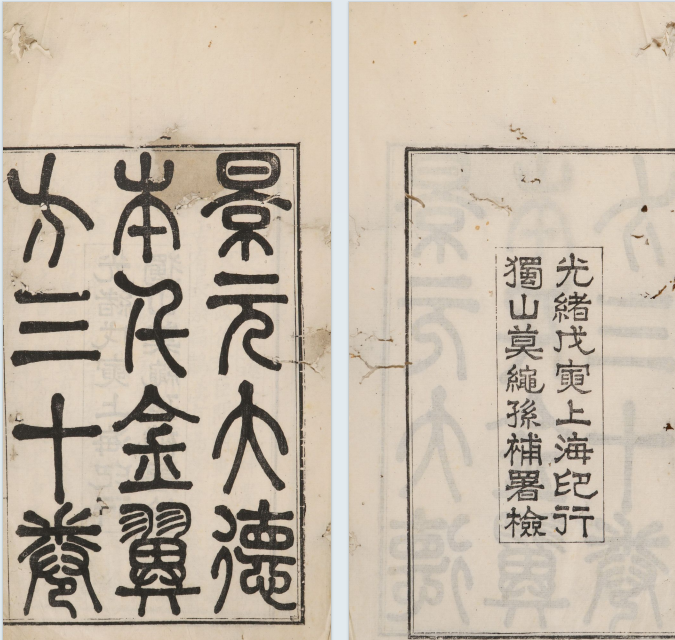 景元大德
本千金翼
方三十卷
光緒戊寅上海印行
獨山莫繩孫補署檢